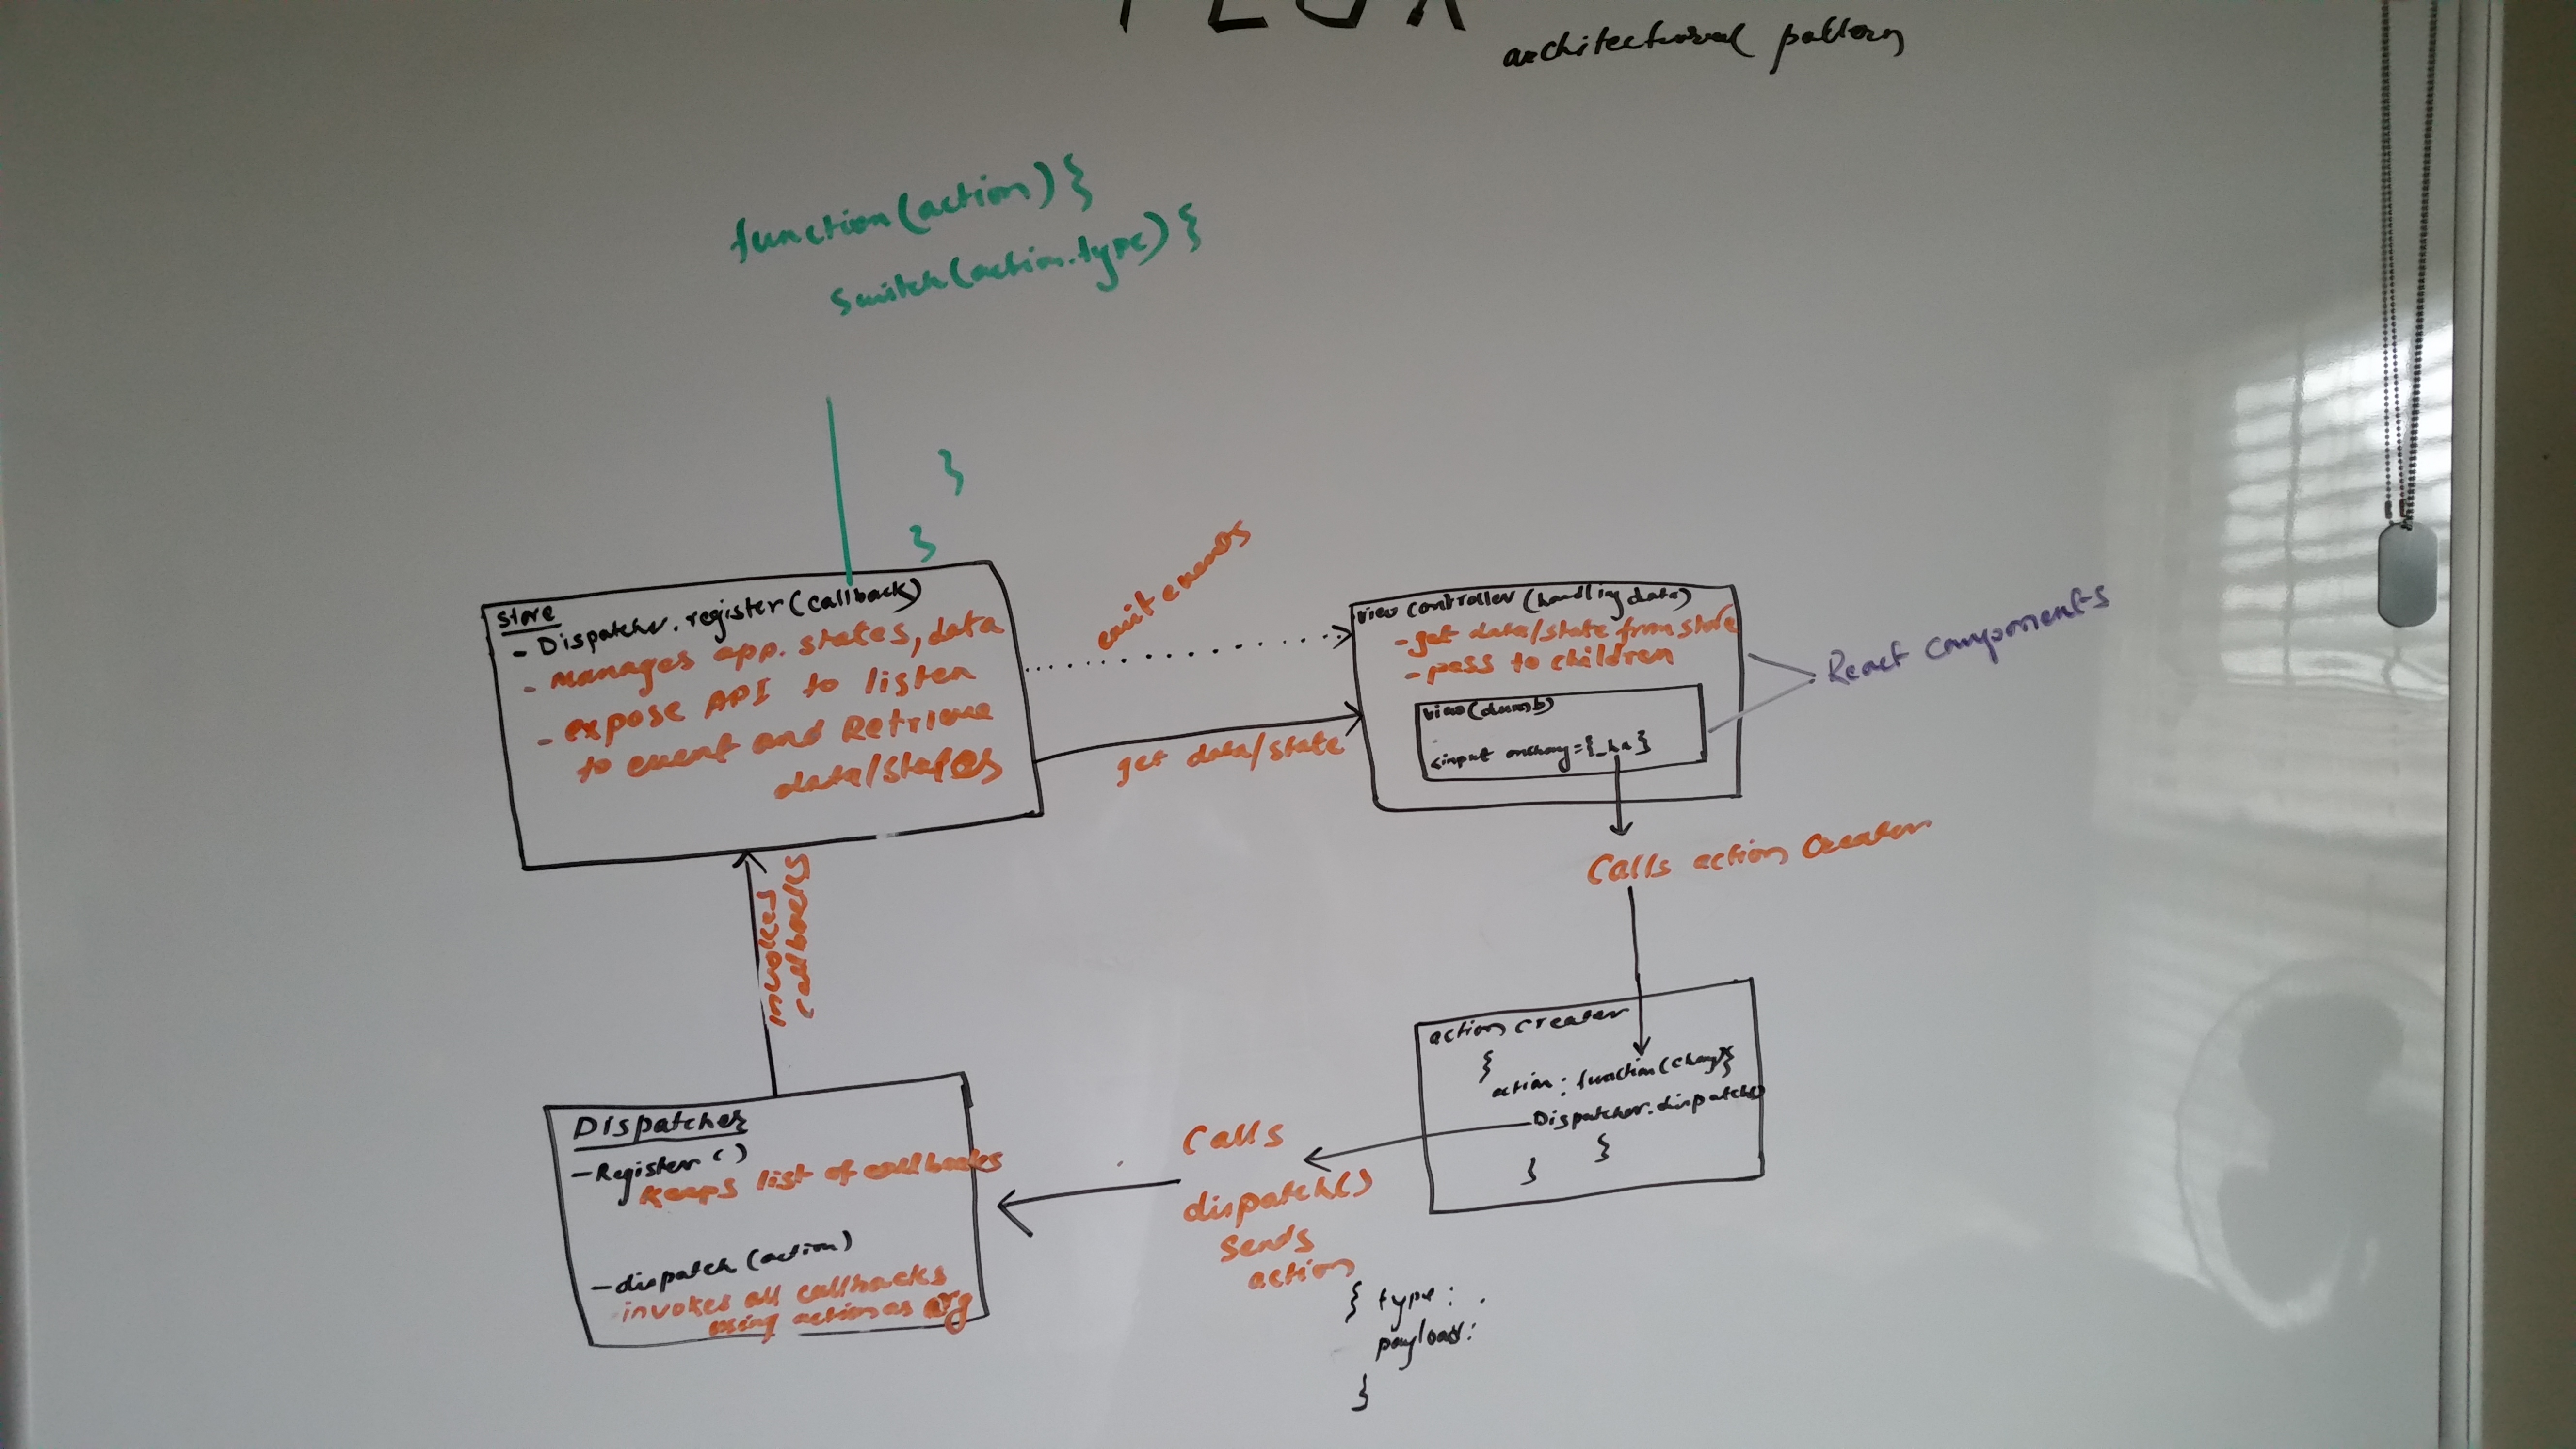 FLUX
architectural pattern
function(action) {
switch(action.type) {
}
}
Store
- Dispatcher.register(callback)
- manages app. states, data
- expose API to listen
to event and Retrieve
data/states
emit events
get data/state
view controller (handling data)
- get data/state from store
- pass to children
view(dumb)
<input onchang={_ha}
React components
Calls action Creater
action creater
{
action: function(chang){
Dispatcher.dispatch(
}
}
Calls
dispatch()
Sends
action
{ type:
payload:
}
invokes
callbacks
Dispatcher
- Register ()
keeps list of callbacks
- dispatch (action)
invokes all callbacks
using action as arg